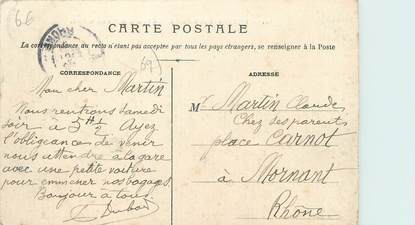 66
CARTE POSTALE
La correspondance au recto n'étant pas acceptée par tous les pays étrangers, se renseigner à la Poste
CORRESPONDANCE
69
Mon cher Martin
Nous rentrons samedi
soir à 5 H 1/2 Ayez
l'obligeance de venir
nous attendre à la gare
avec une petite voiture
pour emmener nos bagages
Bonjour à tous
Dubois
ADRESSE
Mr Martin Claude
Chez des parents
place Carnot
à Mornant
Rhône